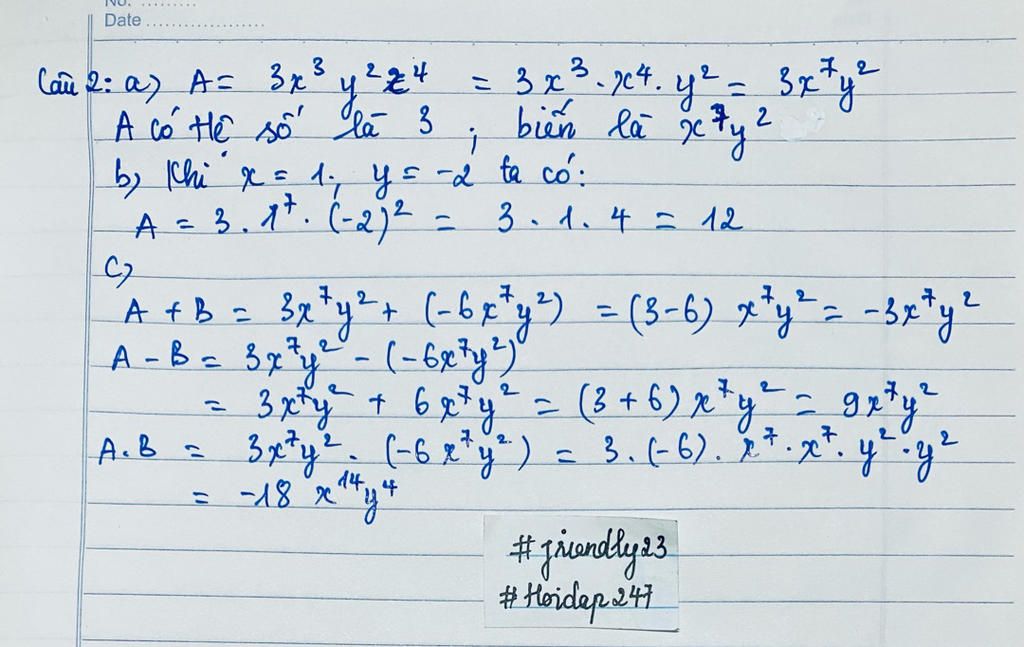 No. ..........
Date ..................
Câu 2: a) A = 3x³ y² z⁴ = 3x³ . x⁴ . y² = 3x⁷y²
A có Hệ số là 3 ; biến là x⁷y²
b) Khi x = 1 ; y = -2 ta có:
A = 3 . 1⁷ . (-2)² = 3 . 1 . 4 = 12
c)
A + B = 3x⁷y² + (-6x⁷y²) = (3-6) x⁷y² = -3x⁷y²
A - B = 3x⁷y² - (-6x⁷y²)
= 3x⁷y² + 6x⁷y² = (3+6) x⁷y² = 9x⁷y²
A.B = 3x⁷y² . (-6x⁷y²) = 3 . (-6) . x⁷ . x⁷ . y² . y²
= -18 x¹⁴y⁴
#friendly23
#Hoidap247